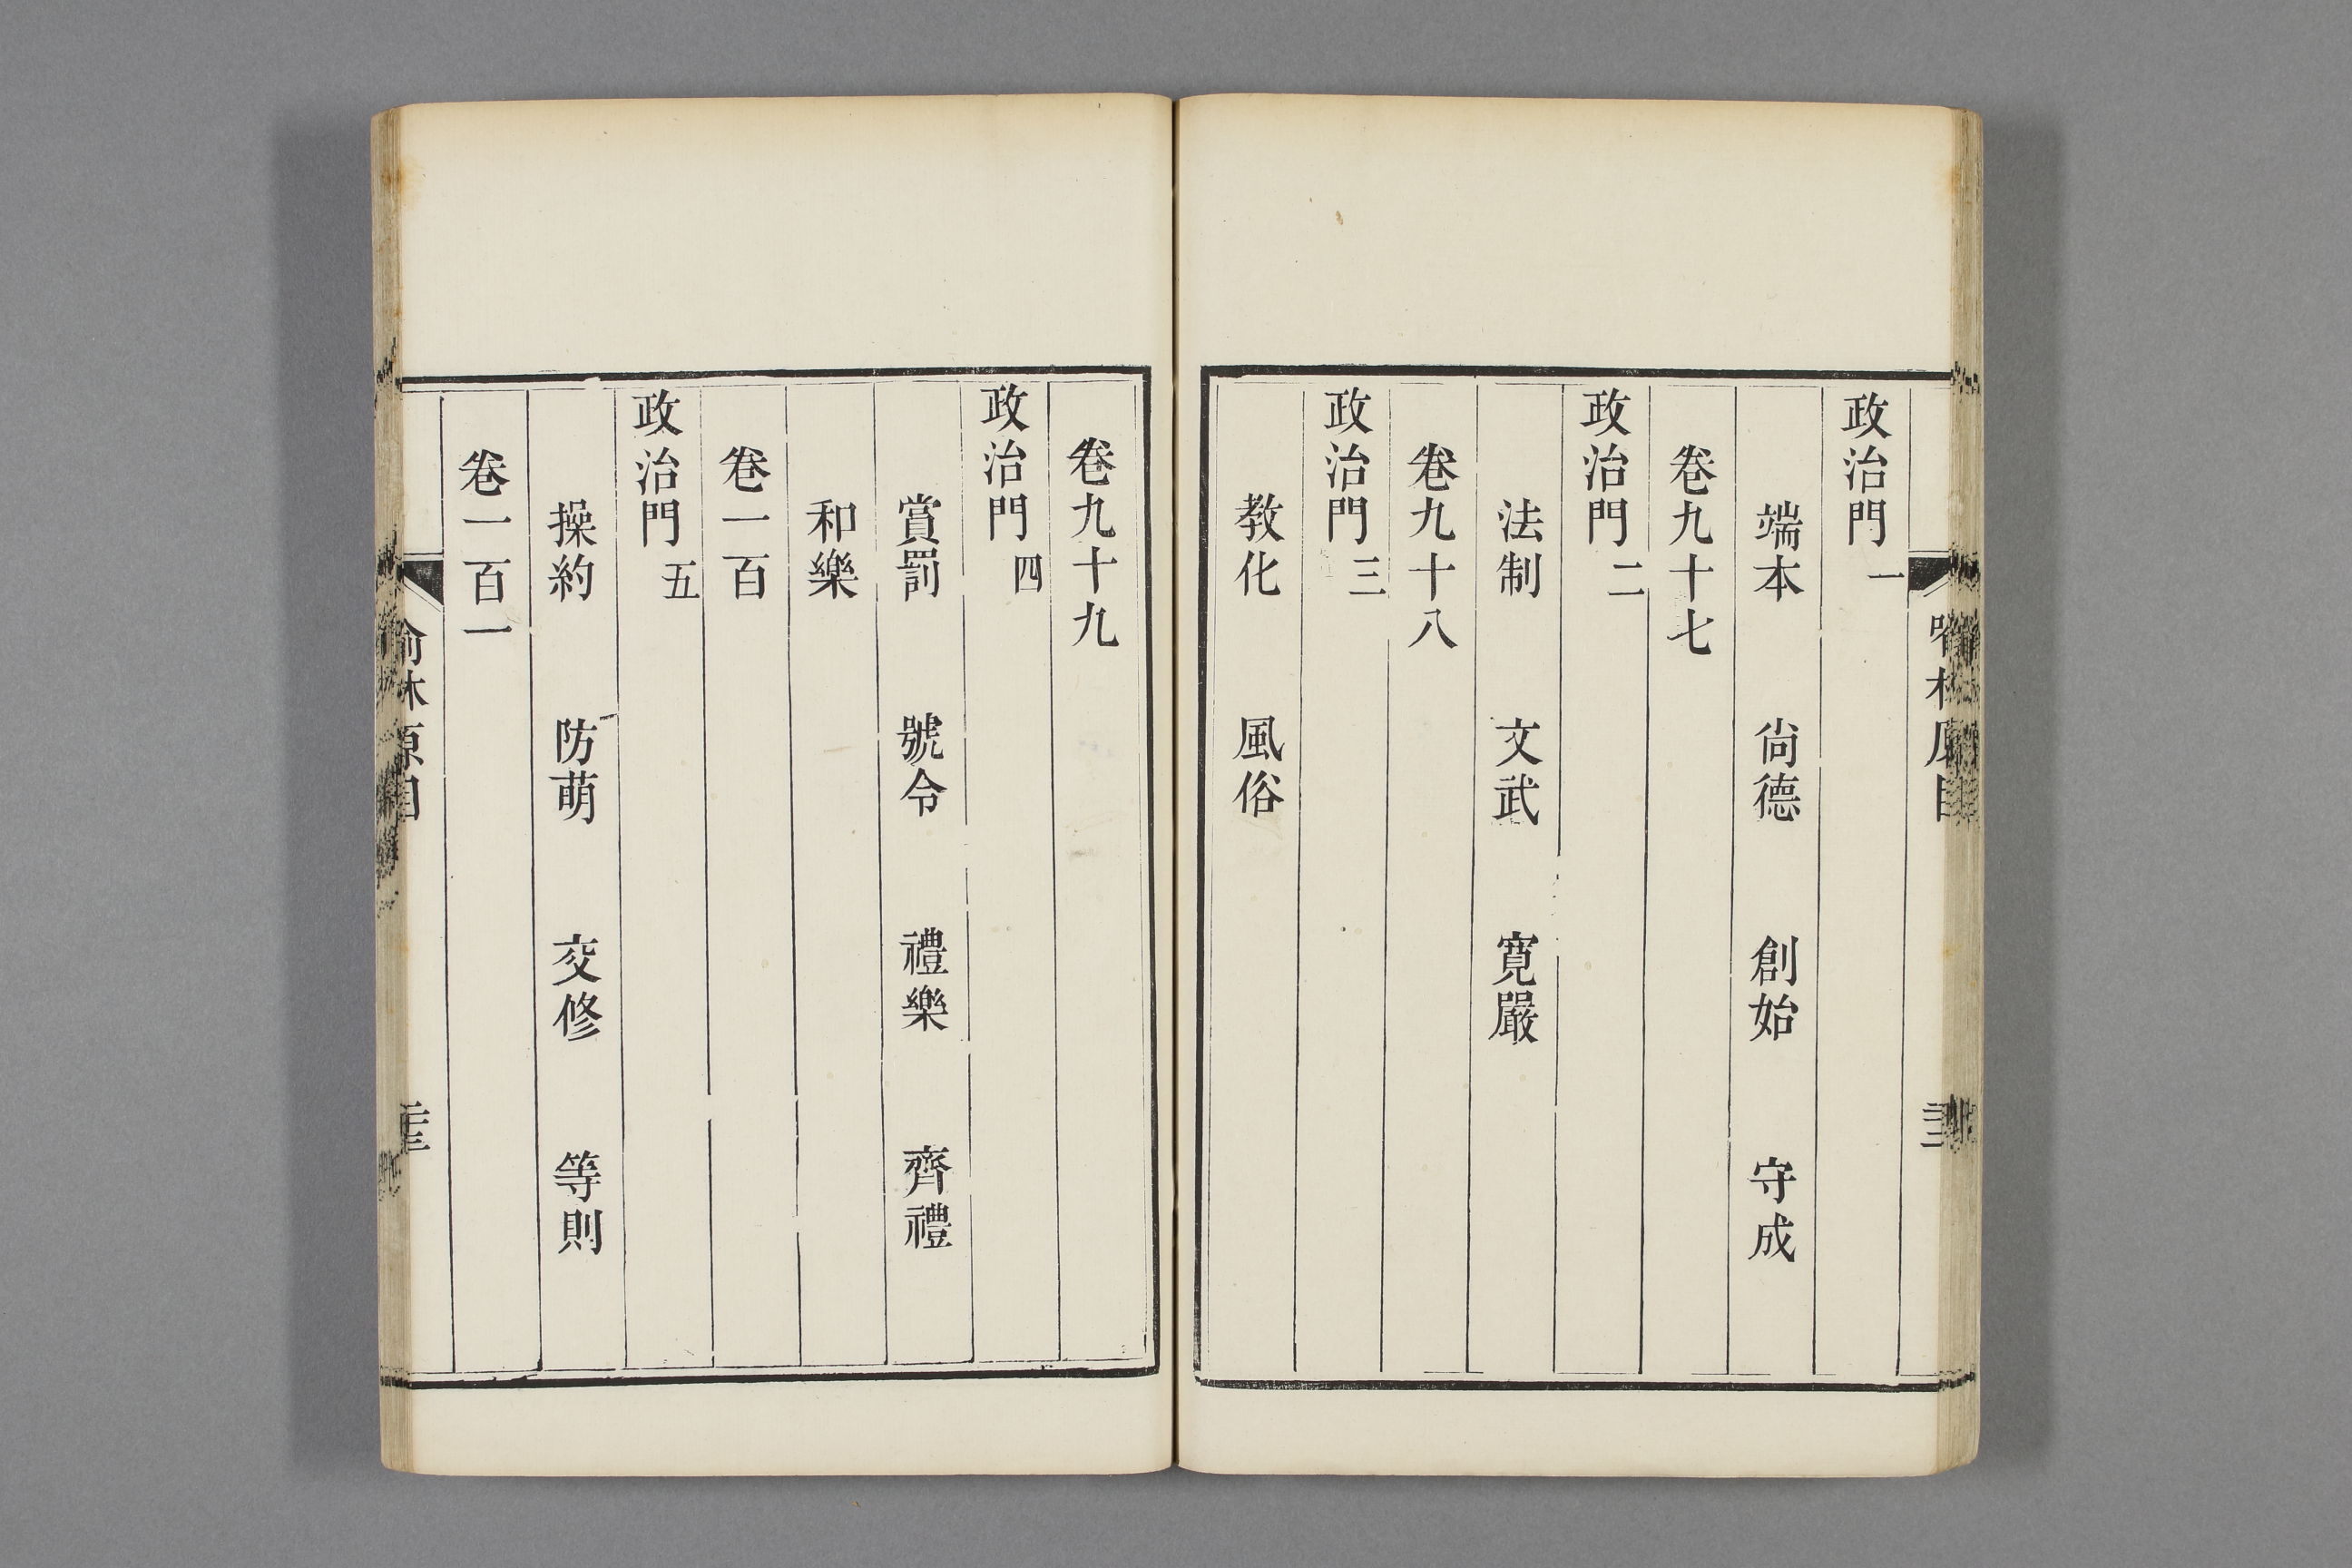 政治門一
端本　尙德　創始　守成
卷九十七
政治門二
法制　文武　寬嚴
卷九十八
政治門三
教化　風俗
卷九十九
政治門四
賞罰　號令　禮樂　齊禮
和樂
卷一百
政治門五
操約　防萌　交修　等則
卷一百一